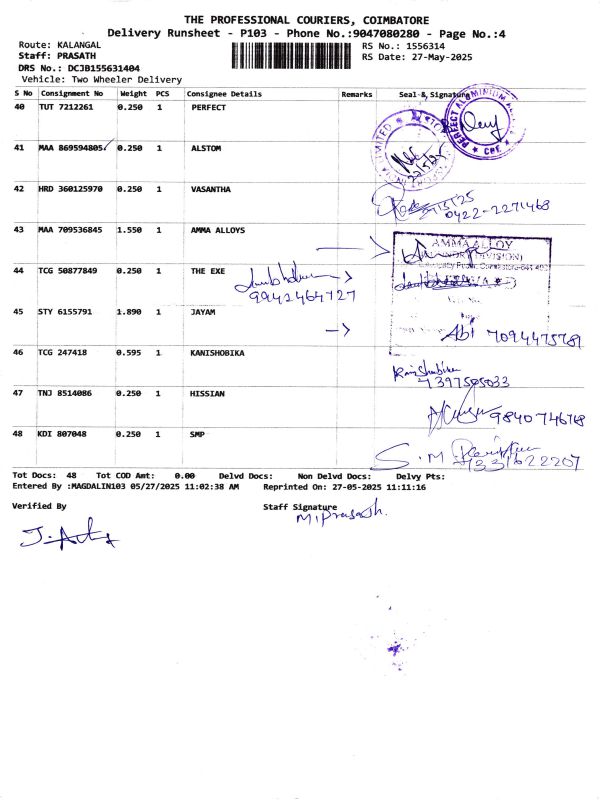 THE PROFESSIONAL COURIERS, COIMBATORE
Delivery Runsheet - P103 - Phone No.:9047080280 - Page No.:4
Route: KALANGAL RS No.: 1556314
Staff: PRASATH RS Date: 27-May-2025
DRS No.: DCJB155631404
Vehicle: Two Wheeler Delivery
S No Consignment No Weight PCS Consignee Details Remarks Seal & Signature
40 TUT 7212261 0.250 1 PERFECT
41 MAA 869594805 0.250 1 ALSTOM
42 HRD 360125970 0.250 1 VASANTHA
0422-2271468
43 MAA 709536845 1.550 1 AMMA ALLOYS
AMMA ALLOY
44 TCG 50877849 0.250 1 THE EXE
9942464727
45 STY 6155791 1.890 1 JAYAM
Abi 7094475781
46 TCG 247418 0.595 1 KANISHOBIKA
7397505033
47 TNJ 8514086 0.250 1 HISSIAN
9840746718
48 KDI 807048 0.250 1 SMP
S.M
Tot Docs: 48 Tot COD Amt: 0.00 Delvd Docs: Non Delvd Docs: Delvy Pts:
Entered By :MAGDALIN103 05/27/2025 11:02:38 AM Reprinted On: 27-05-2025 11:11:16
Verified By Staff Signature
M.Prasath.